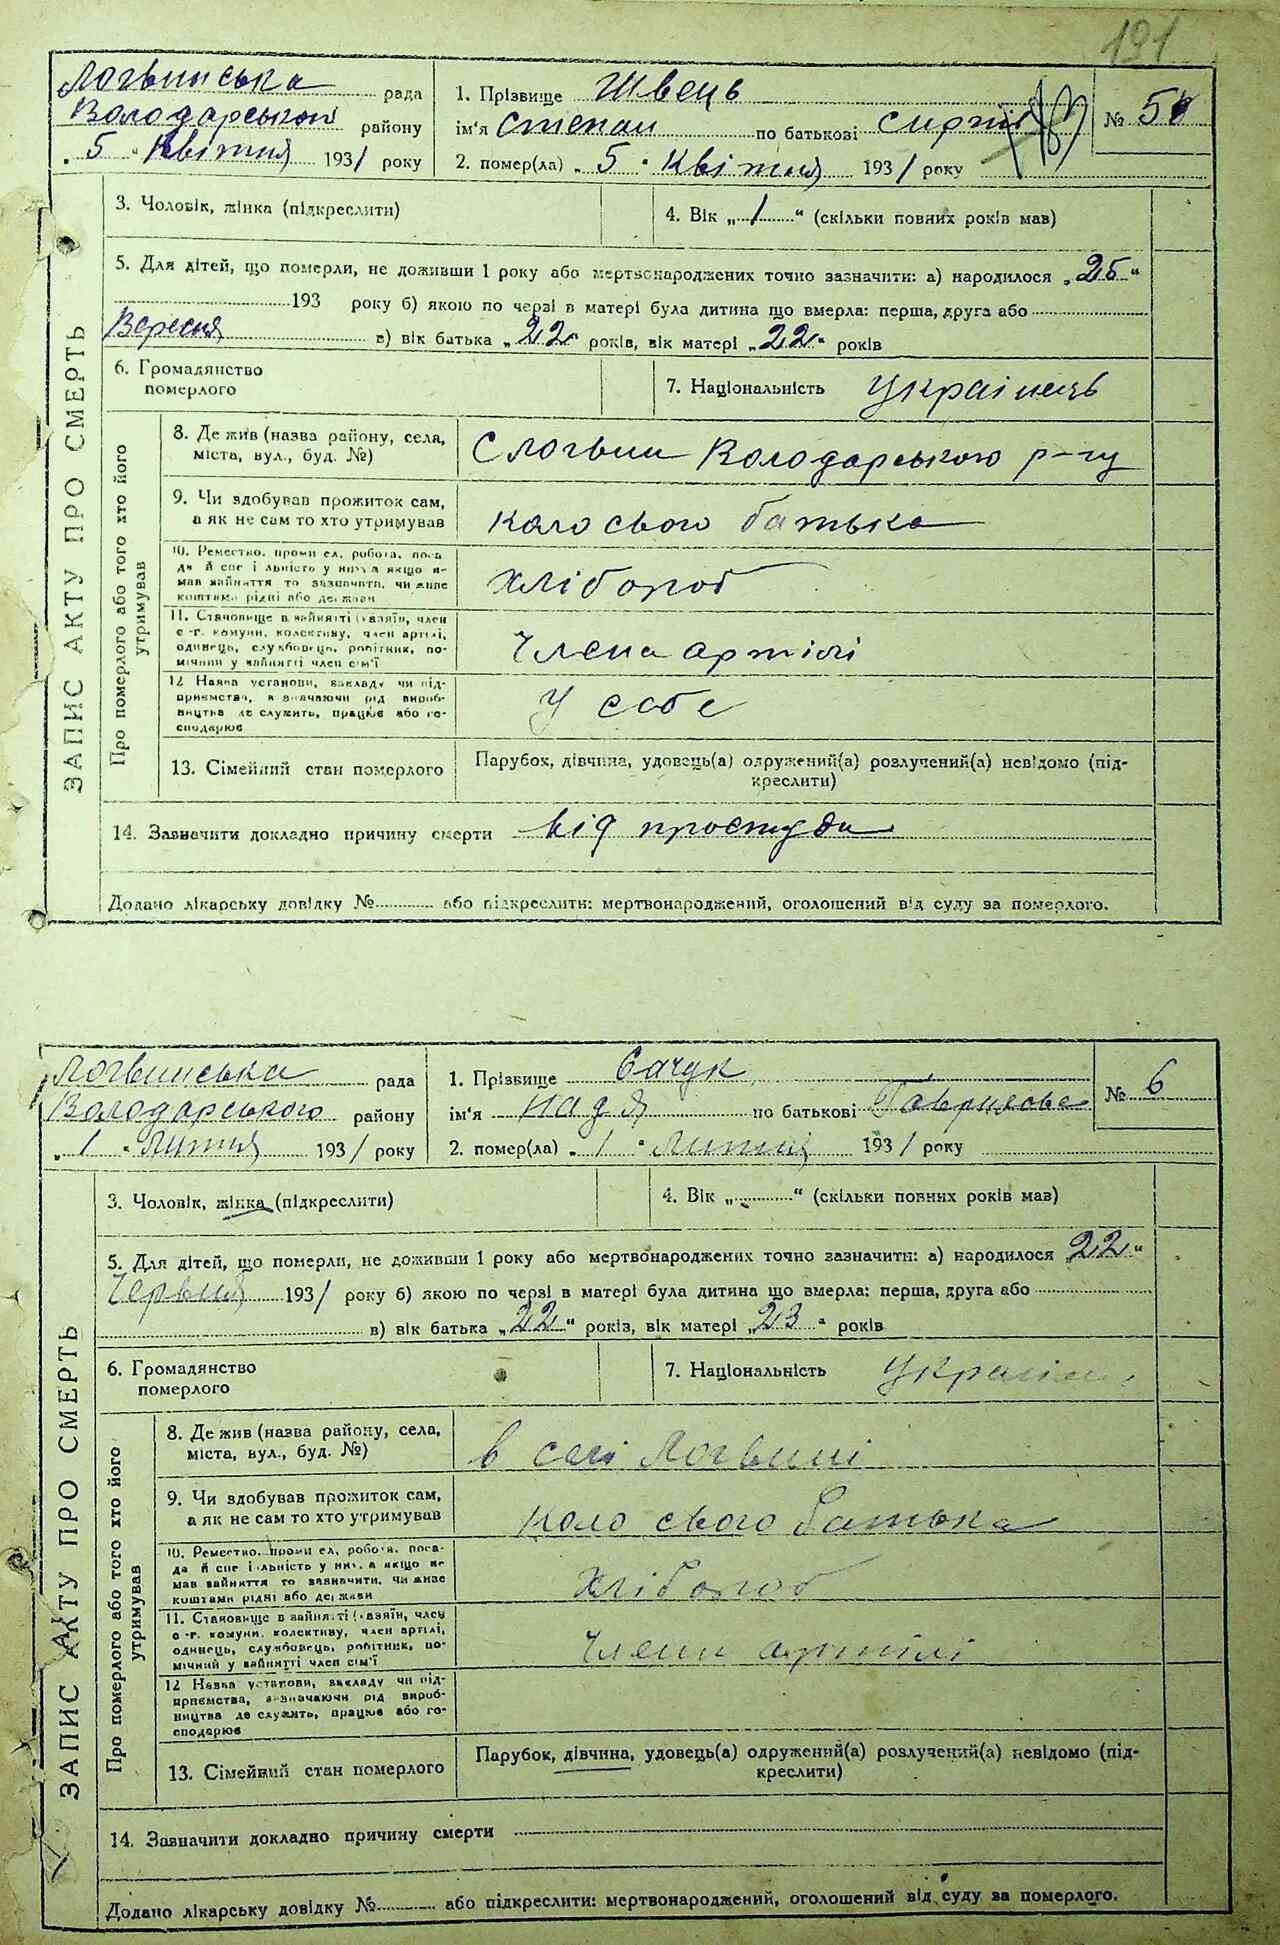 191
Логвинська рада
Володарського району
„ 5 " Квітня 1931 року
1. Прізвище Швець
ім'я Степан по батькові
№ 5
2. помер(ла) „ 5 " Квітня 1931 року
ЗАПИС АКТУ ПРО СМЕРТЬ
3. Чоловік, жінка (підкреслити)
4. Вік „ 1 " (скільки повних років мав)
5. Для дітей, що померли, не доживши 1 року або мертвонароджених точно зазначити: а) народилося „ 25 "
193 року б) якою по черзі в матері була дитина що вмерла: перша, друга або
Вересня в) вік батька „ 22 " років, вік матері „ 22 " років
6. Громадянство
померлого
7. Національність Українець
Про померлого або того хто його
утримував
8. Де жив (назва району, села,
міста, вул., буд. №)
С Логвин Володарського р-ну
9. Чи здобував прожиток сам,
а як не сам то хто утримував
коло свого батька
10. Ремество, промисел, робота, поса-
да й спеціальність у них, а якщо не
мав зайняття то зазначити, чи живе
коштами рідні або держави
хлібороб
11. Становище в зайнятті (хазяїн, член
с.-г. комуни, колективу, член артілі,
одинець, службовець, робітник, по-
мічний у зайнятті член сім'ї
Члена артілі
12 Назва установи, закладу чи під-
приємства, зазначаючи рід вироб-
ництва де служить, працює або го-
сподарює
У себе
13. Сімейний стан померлого
Парубок, дівчина, удовець(а) одружений(а) розлучений(а) невідомо (під-
креслити)
14. Зазначити докладно причину смерти від простуди
Додано лікарську довідку № або підкреслити: мертвонароджений, оголошений від суду за померлого.
Логвинська рада
Володарського району
„ 1 " Липня 1931 року
1. Прізвище Сачук
ім'я Надя по батькові Гаврилова
№ 6
2. помер(ла) „ 1 " Липня 1931 року
ЗАПИС АКТУ ПРО СМЕРТЬ
3. Чоловік, жінка (підкреслити)
4. Вік „ " (скільки повних років мав)
5. Для дітей, що померли, не доживши 1 року або мертвонароджених точно зазначити: а) народилося „ 22 "
Червня 1931 року б) якою по черзі в матері була дитина що вмерла: перша, друга або
в) вік батька „ 22 " років, вік матері „ 23 " років
6. Громадянство
померлого
7. Національність
Про померлого або того хто його
утримував
8. Де жив (назва району, села,
міста, вул., буд. №)
в селі Логвині
9. Чи здобував прожиток сам,
а як не сам то хто утримував
коло свого батька
10. Ремество, промисел, робота, поса-
да й спеціальність у них, а якщо не
мав зайняття то зазначити, чи живе
коштами рідні або держави
хлібороб
11. Становище в зайнятті (хазяїн, член
с.-г. комуни, колективу, член артілі,
одинець, службовець, робітник, по-
мічний у зайнятті член сім'ї
Члени артілі
12 Назва установи, закладу чи під-
приємства, зазначаючи рід вироб-
ництва де служить, працює або го-
сподарює
13. Сімейний стан померлого
Парубок, дівчина, удовець(а) одружений(а) розлучений(а) невідомо (під-
креслити)
14. Зазначити докладно причину смерти
Додано лікарську довідку № або підкреслити: мертвонароджений, оголошений від суду за померлого.